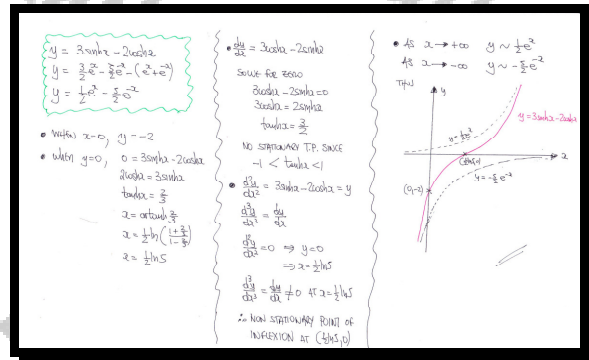 y = 3sinhx - 2coshx
y = 3/2 e^x - 3/2 e^-x - (e^x + e^-x)
y = 1/2 e^x - 5/2 e^-x
• WHEN x=0, y = -2
• WHEN y=0, 0 = 3sinhx - 2coshx
2coshx = 3sinhx
tanhx = 2/3
x = artanh 2/3
x = 1/2 ln((1+2/3)/(1-2/3))
x = 1/2 ln5
• dy/dx = 3coshx - 2sinhx
SOLVE FOR ZERO
3coshx - 2sinhx = 0
3coshx = 2sinhx
tanhx = 3/2
NO STATIONARY T.P. SINCE
-1 < tanhx < 1
• d²y/dx² = 3sinhx - 2coshx = y
d³y/dx³ = dy/dx
d²y/dx² = 0 ⇒ y=0
⇒ x = 1/2 ln5
d³y/dx³ = dy/dx ≠ 0 AT x = 1/2 ln5
∴ NON STATIONARY POINT OF
INFLEXION AT (1/2 ln5, 0)
• AS x → +∞ y ~ 1/2 e^x
AS x → -∞ y ~ -5/2 e^-x
THUS
y
y = 3sinhx - 2coshx
y = 1/2 e^x
x
(1/2 ln5, 0)
y = -5/2 e^-x
(0,-2)